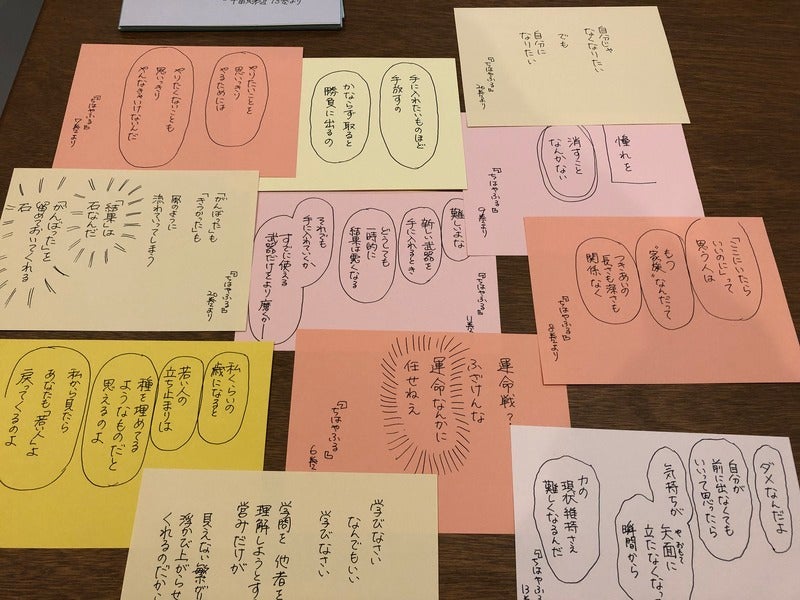 自分じゃ
なくなりたい
でも
自分に
なりたい
『ちはやふる』
やりたいことを
思いっきり
やるためには
やりたくないことも
思いっきり
やんなきゃいけないんだ
『ちはやふる』
手に入れたいものほど
手放すの
かならず取ると
勝負に出るの
憧れを
消すこと
なんかない
『ちはやふる』
9巻より
「がんばった」も
「きつかった」も
風のように
流れていってしまう
「結果」は
石なんだ
「がんばった」を
留めておいてくれる
石
『ちはやふる』
難しいよな
新しい武器を
手に入れるとき
どうしても
一時的に
結果は悪くなる
それでも
手に入れていくか
すでに使える
武器だけをより磨くか―
『ちはやふる』
11巻より
「ここにいたら
いいのに」って
思う人は
もう
"家族"なんだって
つきあいの
長さも深さも
関係なく
『ちはやふる』
8巻より
私くらいの
歳になると
若い人の
立ち止まりは
種を埋めてる
ようなものだと
思えるのよ
私から見たら
あなたも「若い人」よ
戻ってくるのよ
運命戦?
ふざけんな
運命なんかに
任せねえ
『ちはやふる』
6巻
ダメなんだよ
自分が
前に出なくても
いいって思ったら
気持ちが
矢面に
やおもて
立たなくなった
瞬間から
力の
現状維持さえ
難しくなるんだ
『ちはやふる』
13巻
学びなさい
なんでもいい
学びなさい
学問を他者を
理解しようとす
営みだけが
見えない繋が
浮かび上がらせ
くれるのだか